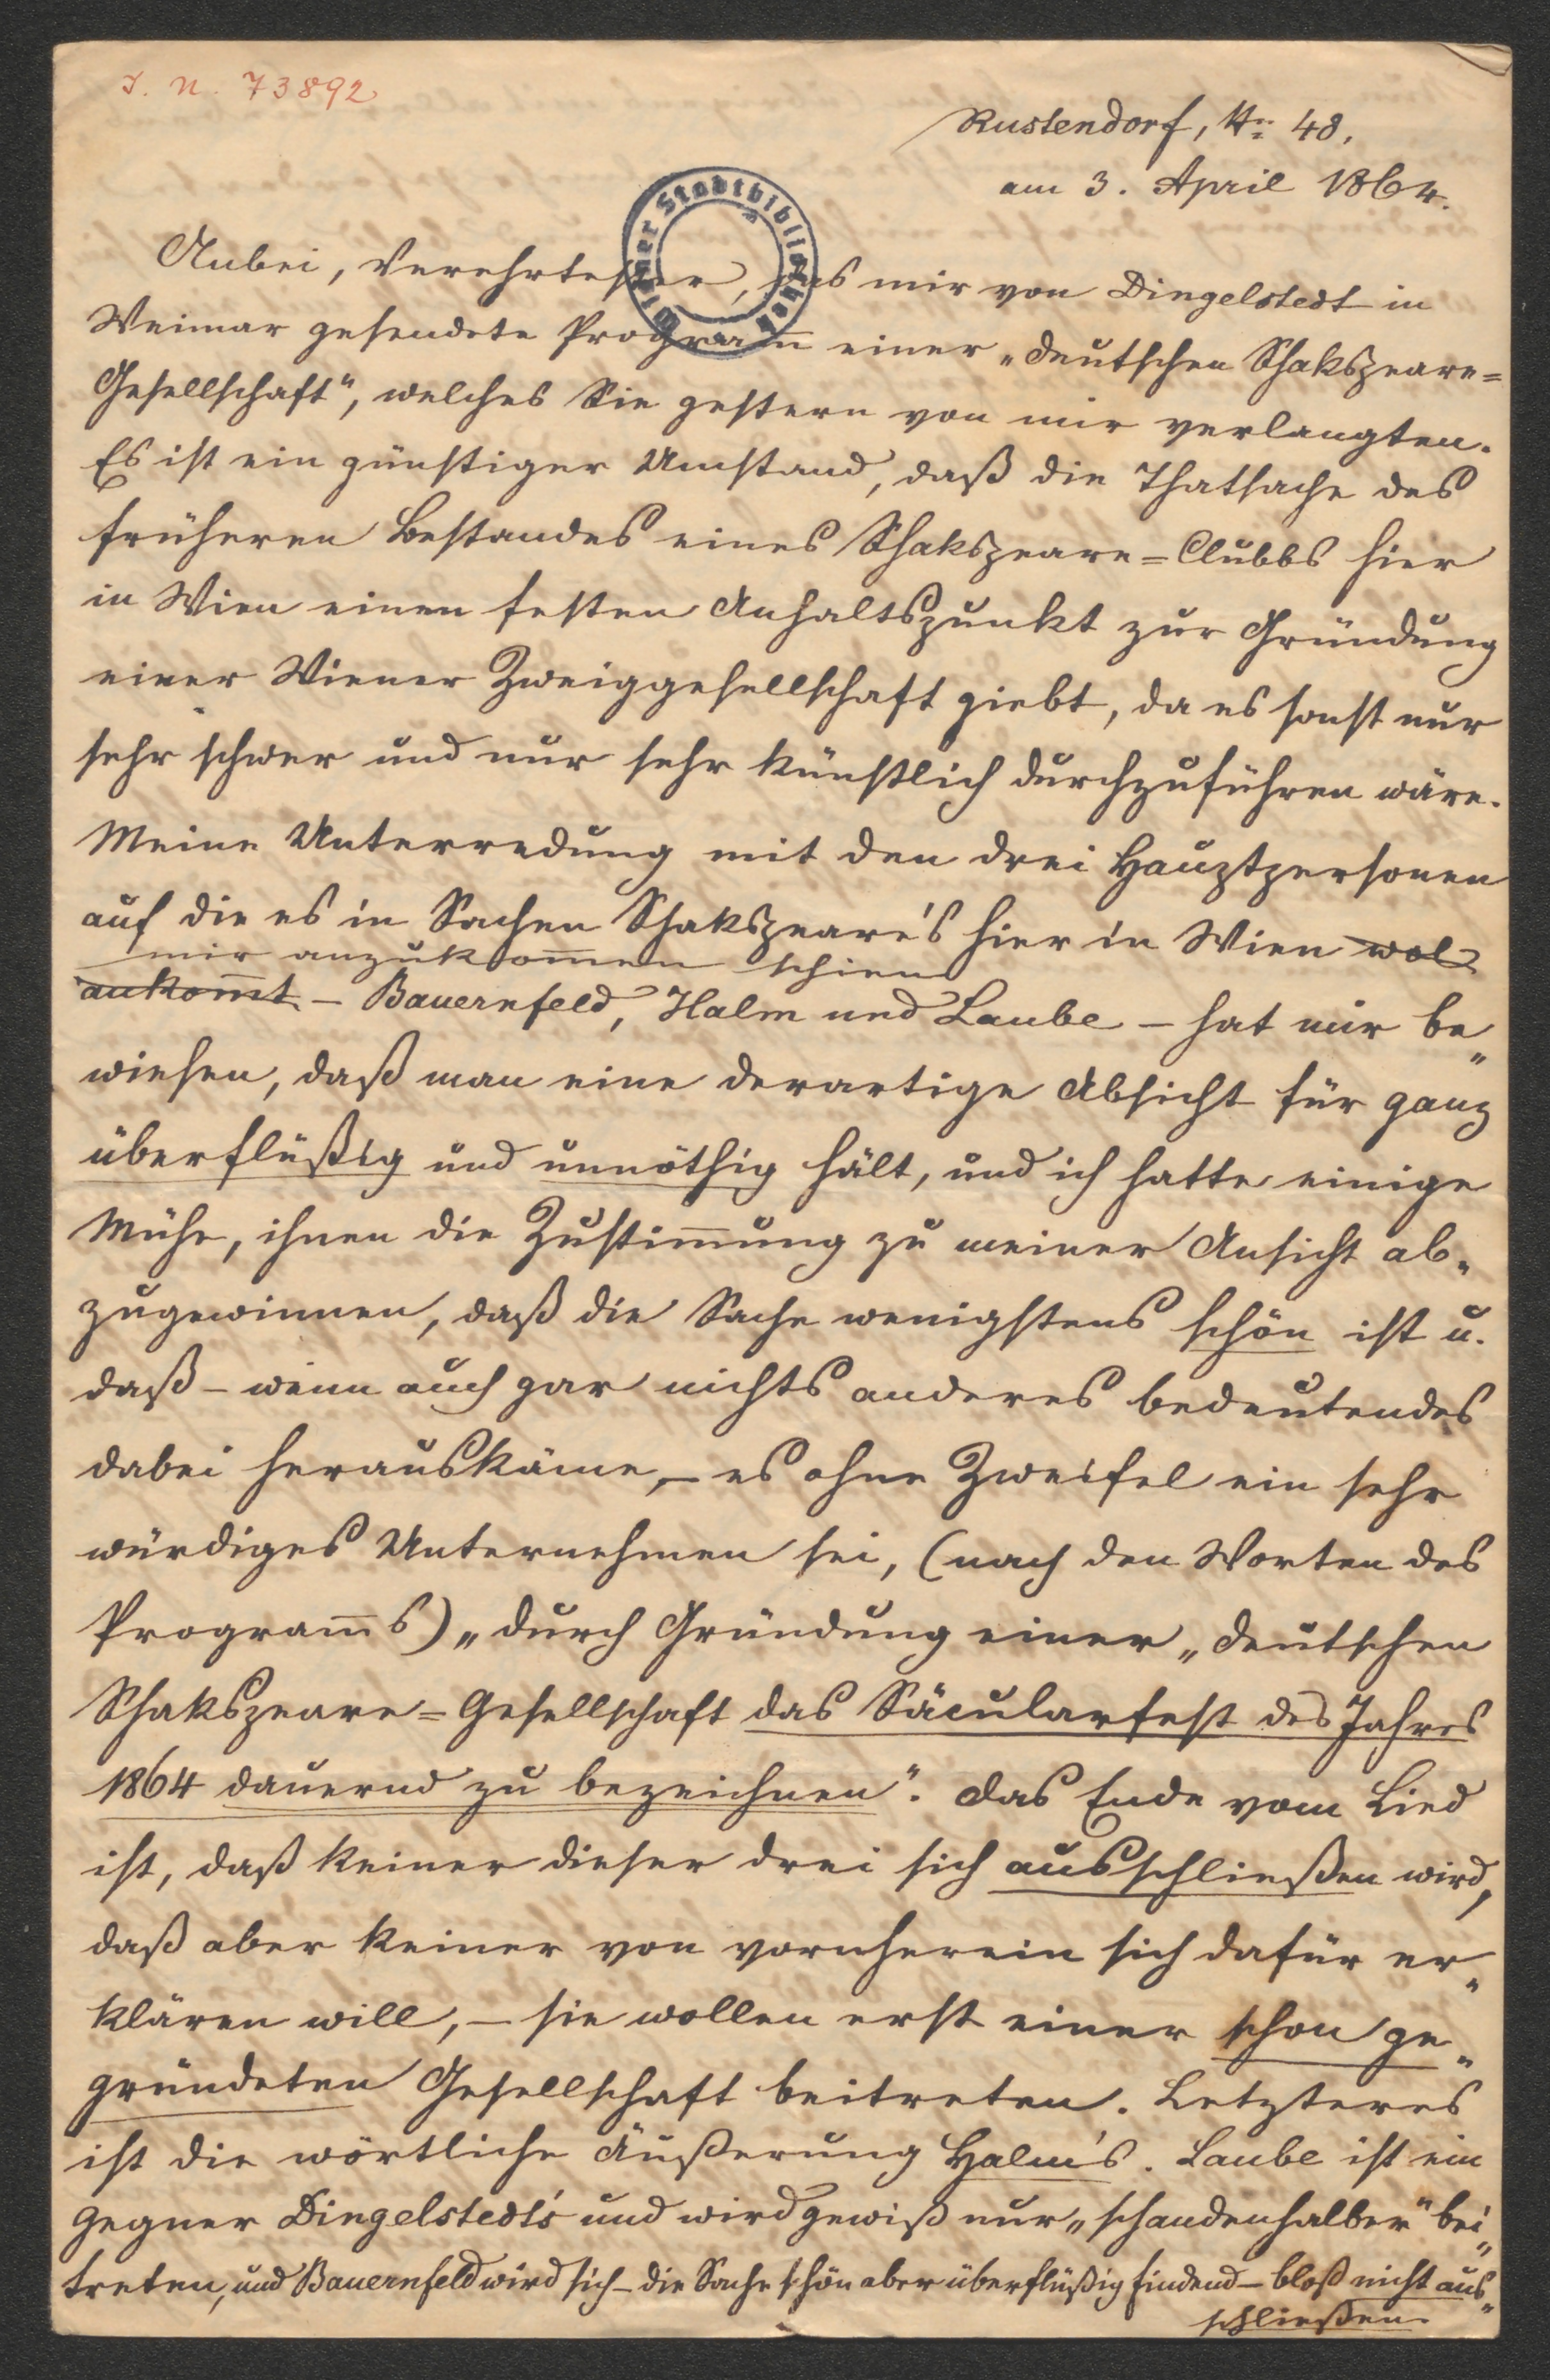 I. N. 73892
Rustendorf, Nr. 48,
am 3. April 1864.
Wiener Stadtbibliothek
Anbei, Verehrtester, das mir von Dingelstedt in
Weimar gesendete Program̄ einer „deutschen Shakspeare=
Gesellschaft“, welches Sie gestern von mir verlangten.
Es ist ein günstiger Umstand, daß die Thatsache des
früheren Bestandes eines Shakspeare=Clubbs hier
in Wien einen festen Anhaltspunkt zur Gründung
einer Wiener Zweiggesellschaft giebt, da es sonst nur
sehr schwer und nur sehr künstlich durchzuführen wäre.
Meine Unterredung mit den drei Hauptpersonen
auf die es in Sachen Shakspeare's hier in Wien wol
mir anzukom̄en schien
ankom̄t – Bauernfeld, Halm und Laube – hat mir be„
wiesen, daß man eine derartige Absicht für ganz
überflüßig und unnöthig hält, und ich hatte einige
Mühe, ihnen die Zustim̄ung zu meiner Ansicht ab„
zugewinnen, daß die Sache wenigstens schön ist u.
daß – wenn auch gar nichts anderes bedeutendes
dabei herauskäme, – es ohne Zweifel ein sehr
würdiges Unternehmen sei, (nach den Worten des
Program̄s) „durch Gründung einer „deutschen
Shakspeare=Gesellschaft das Säcularfest des Jahres
1864 dauernd zu bezeichnen“. Das Ende vom Lied
ist, daß keiner dieser drei sich ausschließen wird,
daß aber keiner von vornherein sich dafür er„
klären will, – sie wollen erst einer schon ge„
gründeten Gesellschaft beitreten. Letzteres
ist die wörtliche Äußerung Halm's. Laube ist ein
Gegner Dingelstedt's und wird gewiß nur „schandenhalber“ bei„
treten, und Bauernfeld wird sich – die Sache schön aber überflüßig findend – bloß nicht aus„
schließen.